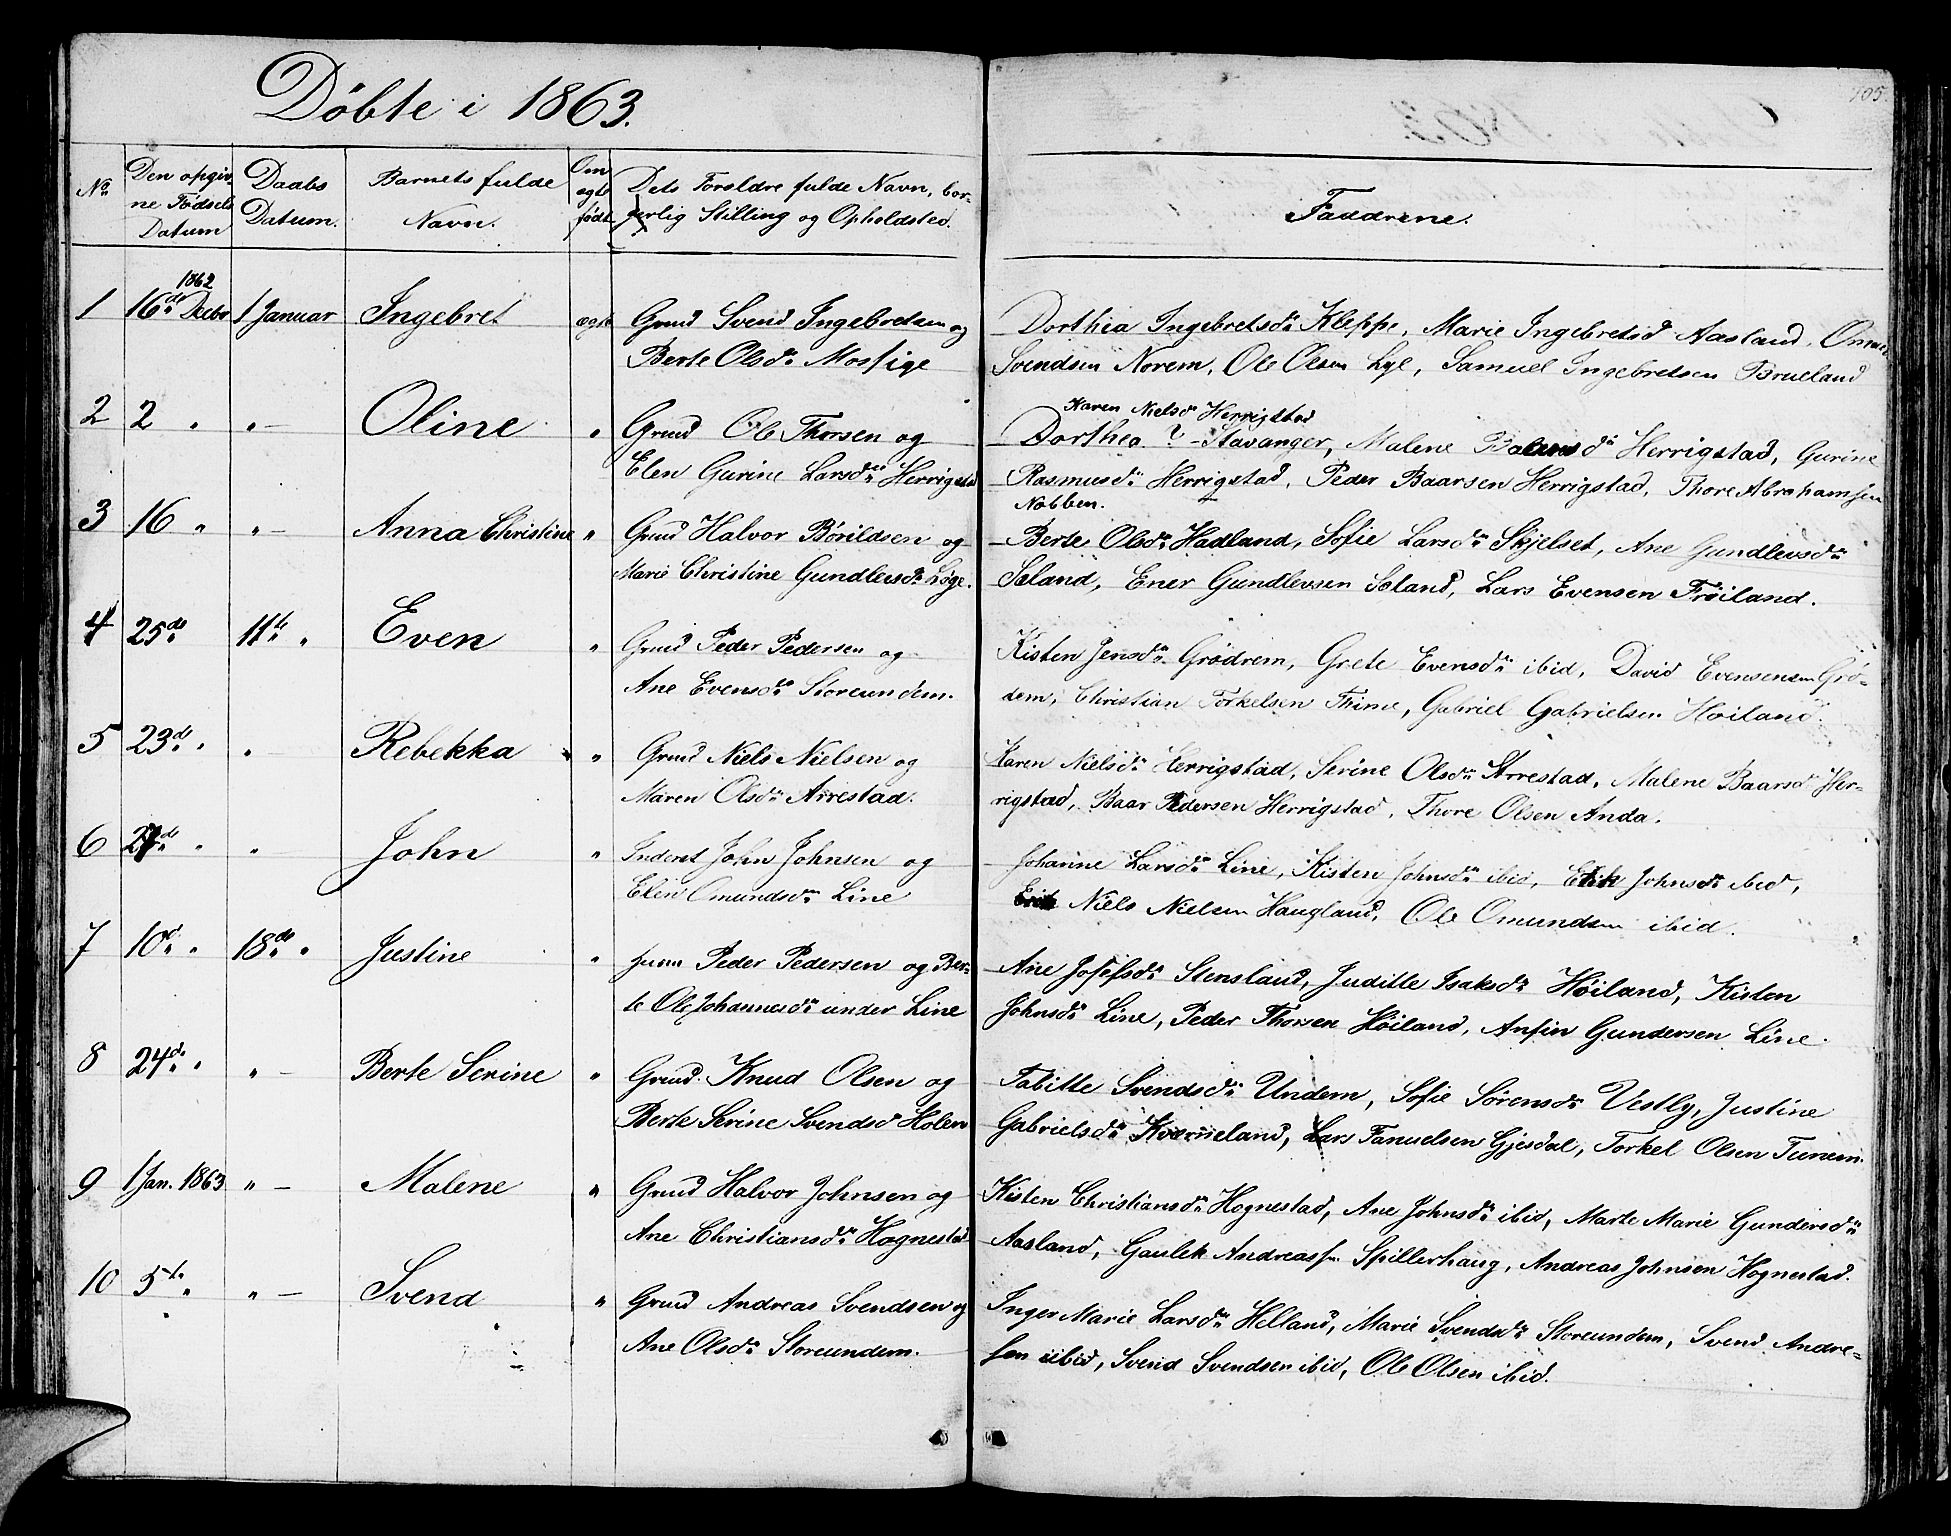 Döbte i 1863.
105.
No
Den opgiv-
ne Födsels
Datum
Daabs
Datum.
Barnets fulde
Navn.
Om
ægte
födt
Dets Forældre fulde Navn, bor-
gerlig Stilling og Opholdsted.
Faddrene.
1 16de Decbr 1862 1 Januar Ingebret ægte Grmd Svend Ingebretsen og
Berte Olsdr Mossige
Dorthia Ingebretsdr Kleppe, Marie Ingebretsd Aasland,
Svendsen Norem, Ole Olsen Lye, Samuel Ingebretsen Brueland
2 2 " " — Oline " Grmd Ole Thorsen og
Elen Gurine Larsdr Herrigstad
Karen Nielsdr Herrigstad
Dorthea ? Stavanger, Malene Baarsdr Herrigstad, Gurine
Rasmusdr Herrigstad, Peder Baarsen Herrigstad, Thore Abrahamsen
Nobben.
3 16 " " — Anna Christine " Grmd Halvor Börildsen og
Marie Christine Gundlevsdr Löge.
Berte Olsdr Hadland, Sofie Larsdr Skjelset, Ane Gundlevsdr
Sæland, Ener Gundlevsen Sæland, Lars Evensen Fröiland.
4 25de 11te " Even " Grmd Peder Pedersen og
Ane Evensdr Storeundem.
Kisten Jensdr Grödrem, Grete Evensdr ibid, David Evensen Grö-
dem, Christian Torkelsen Thime, Gabriel Gabrielsen Höiland.
5 23de " " — Rebekka " Grmd Niels Nielsen og
Maren Olsdr Arrestad.
Karen Nielsdr Herrigstad, Serine Olsdr Arrestad, Malene Baarsd Her-
rigstad, Baar Pedersen Herrigstad, Thore Olsen Anda.
6 " " John " Inderst John Johnsen og
Elen Omundsdr Line
Johanne Larsdr Line, Kisten Johnsdr ibid, Johnsdr ibid,
Niels Nielsen Haugland, Ole Omundsen ibid.
7 10d " 18de " Justine " Peder Pedersen og Ber-
te Ole Johannesdr under Line
Ane Josefsdr Stensland, Juditte Isaksdr Höiland, Kisten
Johnsdr Line, Peder Thorsen Höiland, Anfin Gundersen Line.
8 24de " " — Berte Serine " Grmd. Knud Olsen og
Berte Serine Svendsd Holen
Tabitte Svendsdr Undem, Sofie Sörensdr Vestly, Justine
Gabrielsdr Kverneland, Lars Fanuelsen Gjesdal, Torkel Olsen Tunem.
9 1 Jan. 1863 " — Malene " Grmd Halvor Johnsen og
Ane Christiansdr Hognestad
Kisten Christiansdr Hognestad, Ane Johnsdr ibid, Marte Marie Gundersdr
Aasland, Gaulek Andreassn Spillerhaug, Andreas Johnsen Hognestad.
10 5te " " — Svend " Grmd Andreas Svendsen og
Ane Olsdr Storeundem.
Inger Marie Larsdr Helland, Marie Svendsdr Storeundem, Svend Andre-
sen ibid, Svend Svendsen ibid, Ole Olsen ibid.